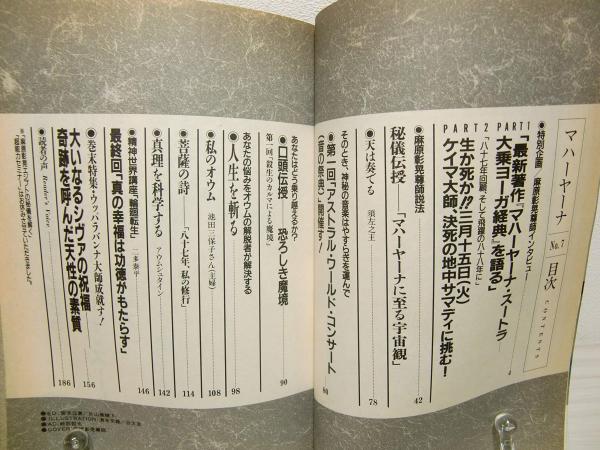 マハーヤーナ No.7 目次 CONTENTS
●特別企画 麻原彰晃尊師インタビュー
PART 1
「最新著作『マハーヤーナ・スートラ
大乗ヨーガ経典』を語る」
4
PART 2 「八十七年回顧、そして飛躍の八十八年に」
生か死か!!三月十五日(火)
ケイマ大師、決死の地中サマディに挑む!
●麻原彰晃尊師説法
秘儀伝授 「マハーヤーナに至る宇宙観」
42
●天は奏でる 須左之王
78
そのとき、神秘の音楽はやすらぎを運んで
●第一回「アストラル・ワールド・コンサート
(音の祭典)」開催す!
80
あなたはどう乗り越えるか?
●口頭伝授 恐ろしき魔境
第一回「殺生のカルマによる魔境」
90
あなたの悩みをオウムの解脱者が解決する
●人生を斬る
98
●私のオウム 池田三保子さん(主婦)
108
●菩薩の詩 「八十七年、私の修行」
114
●真理を科学する アウムシュタイン
142
●精神世界講座、「輪廻転生」 一多泰平
最終回「真の幸福は功徳がもたらす」
146
●巻末特集・ウッパラバンナ大師成就す!
大いなるシヴァの祝福
奇跡を呼んだ天性の素質
156
●読者の声 Reader's Voice
186